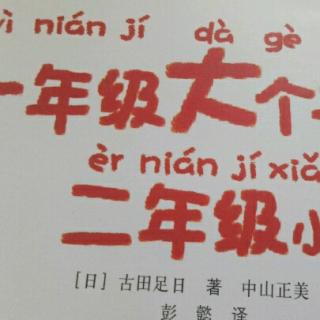 yì nián jí dà gè
一年级大个
èr nián jí xiǎ
二年级小
[日] 古田足日 著 中山正美
彭懿 译